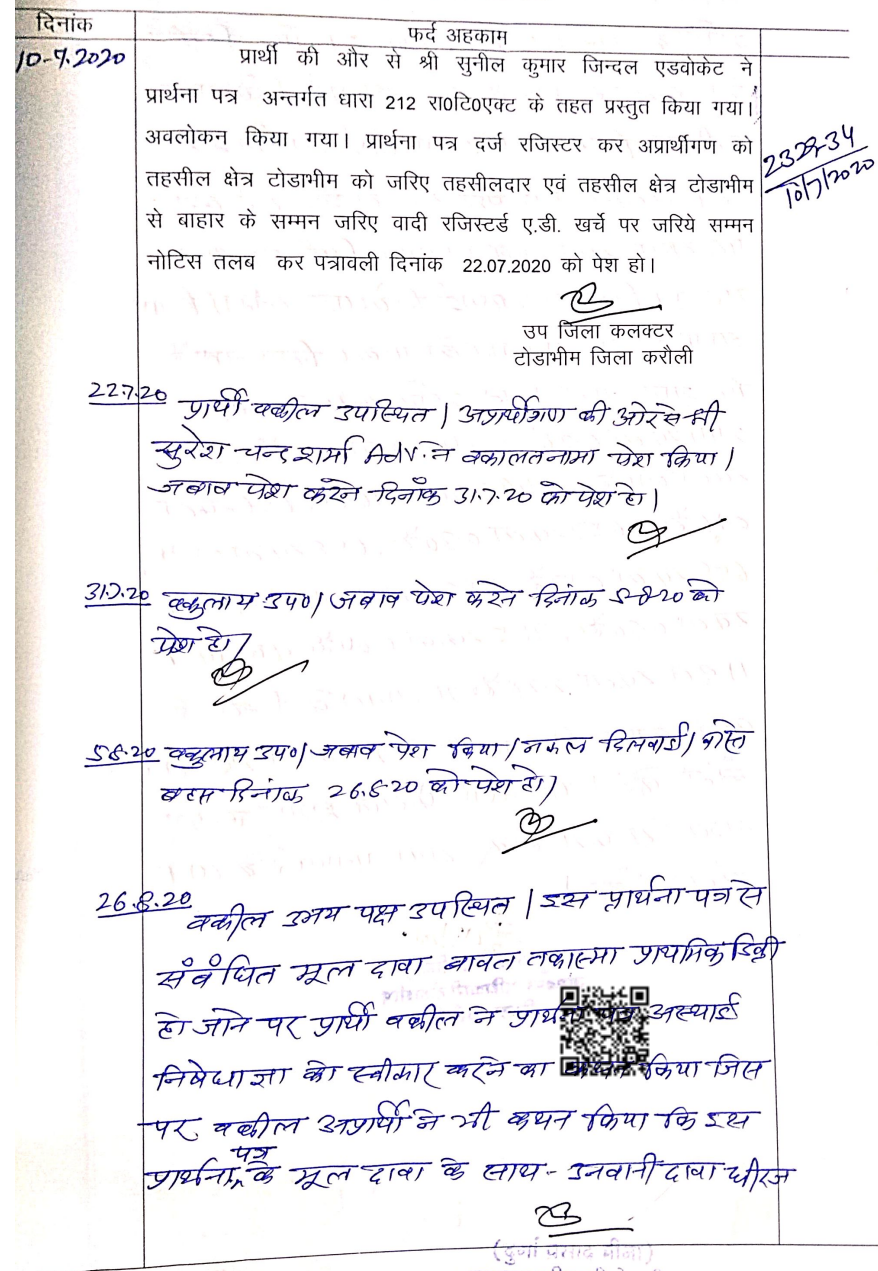 दिनांक
फर्द अहकाम
10-7.2020
प्रार्थी की और से श्री सुनील कुमार जिन्दल एडवोकेट ने
प्रार्थना पत्र अन्तर्गत धारा 212 रा0टि0एक्ट के तहत प्रस्तुत किया गया।
अवलोकन किया गया। प्रार्थना पत्र दर्ज रजिस्टर कर अप्रार्थीगण को
तहसील क्षेत्र टोडाभीम को जरिए तहसीलदार एवं तहसील क्षेत्र टोडाभीम
से बाहार के सम्मन जरिए वादी रजिस्टर्ड ए.डी. खर्चे पर जरिये सम्मन
नोटिस तलब कर पत्रावली दिनांक 22.07.2020 को पेश हो।
10/7/2020
उप जिला कलक्टर
टोडाभीम जिला करौली
22.7.20
प्रार्थी वकील उपस्थित। अप्रार्थीगण की ओर से श्री
सुरेश चन्द शर्मा Adv. ने वकालतनामा पेश किया।
जबाव पेश करने दिनाँक 31.7.20 को पेश हो।
31.7.20 वकुलाय उप०। जबाव पेश करने दिनांक 5-8-20 को
पेश हो।
5.8.20 वकुलाय उप०। जबाव पेश किया। नकल दिलवाई। वास्ते
बहस दिनांक 26.8.20 को पेश हो।
26.8.20
वकील उभय पक्ष उपस्थित। इस प्रार्थना पत्र से
संबंधित मूल दावा बावत तकास्मा प्राथमिक डिक्री
हो जाने पर प्रार्थी वकील ने प्रार्थना पत्र अस्थाई
निषेधाज्ञा को स्वीकार करने का कथन किया जिस
पर वकील अप्रार्थी ने भी कथन किया कि इस
प्रार्थना पत्र के मूल दावा के साथ - उनवानी दावा धीरज